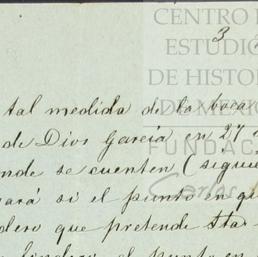 CENTRO D
ESTUDIO
DE HISTOR
DE MEXICO
FUNDAC
Carlos
3
tal medida de la boca
de Dios Garcia en 27 2
nde se cuenten (segun
ará si el punto en qu
dero que pretende Sta
lindero el punto en